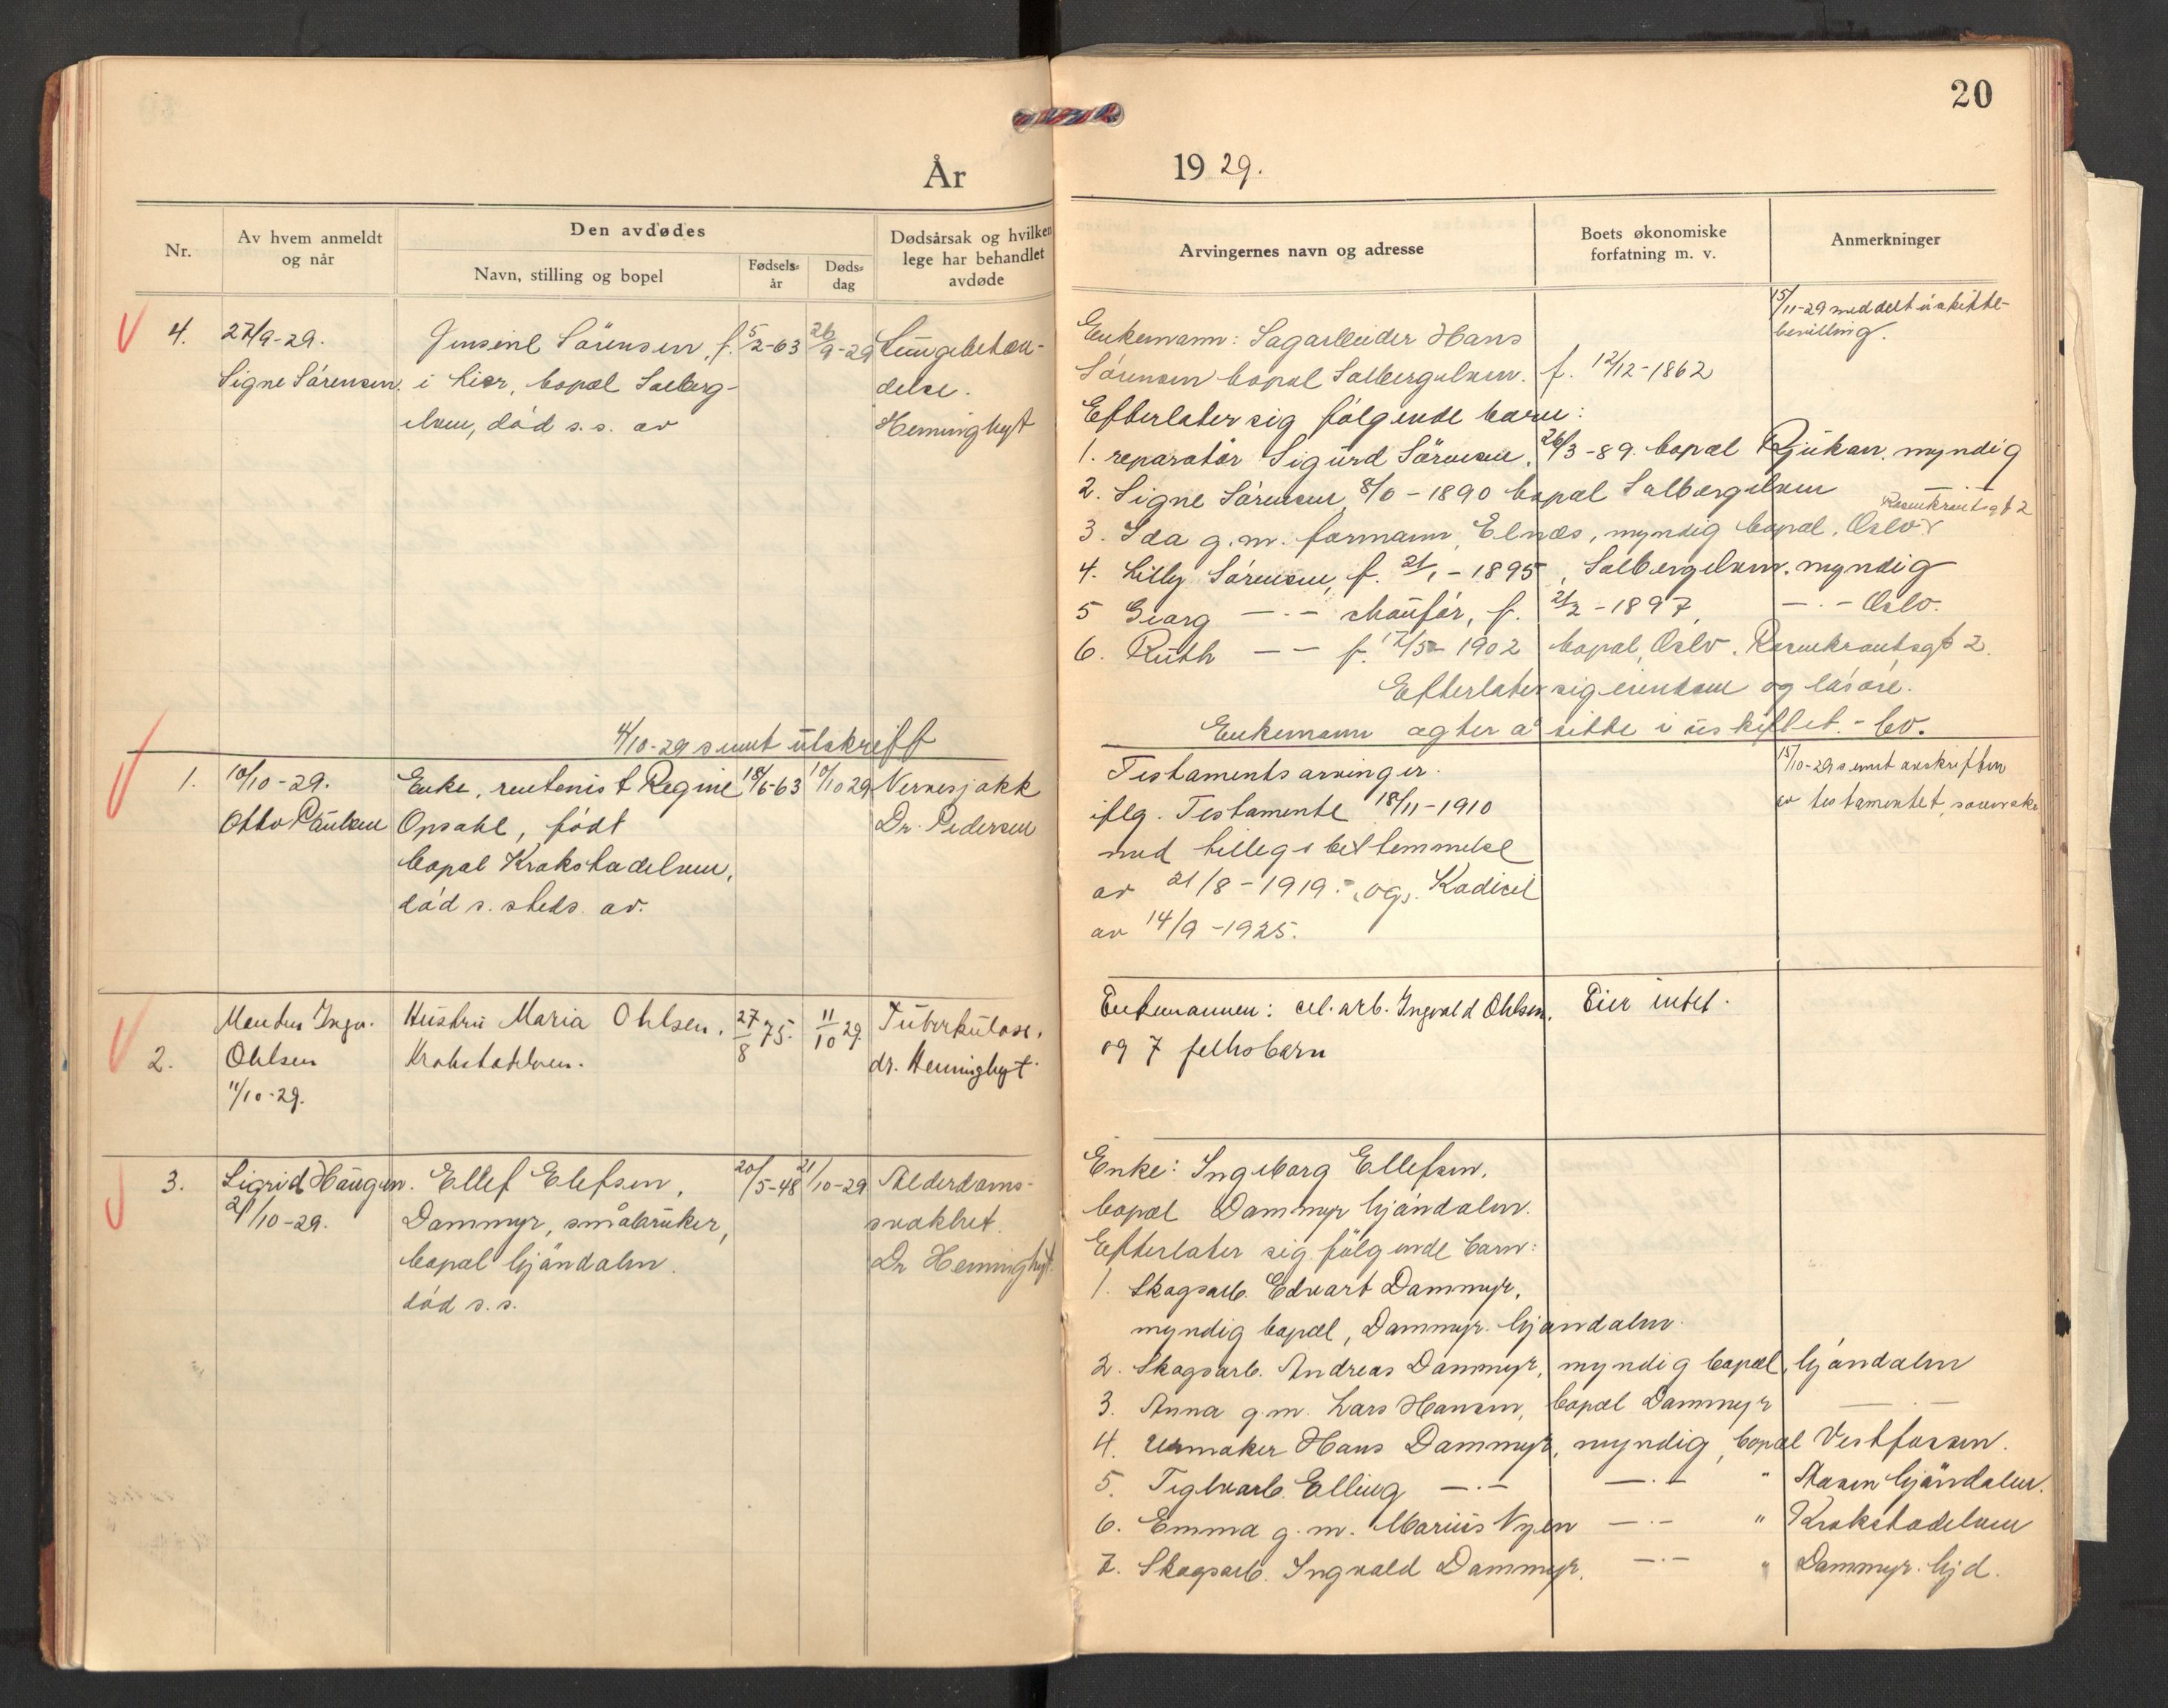 20
År
19 29.
Nr.
Av hvem anmeldt
og når
Den avdødes
Navn, stilling og bopel
Fødsels-
år
Døds-
dag
Dødsårsak og hvilken
lege har behandlet
avdøde
Arvingernes navn og adresse
Boets økonomiske
forfatning m. v.
Anmerkninger
4.
27/9-29.
Signe Sørensen
Jensine Sörensen, f.
i Lier, bopæl Solberg-
elven, død s.s. av
5/2-63
26/9-29
Lungebeten-
delse.
Heminghyt
Enkemann: Sagarbeider Hans
Sørensen bopæl Solbergelven. f. 12/12-1862
Efterlater sig følgende barn:
1. reparatør Sigurd Sörensen, 26/3-89. bopæl Rjukan. myndig
2. Signe Sørensen, 8/6-1890 bopæl Solbergelven
3. Ida g.m. formann, Elnæs, myndig bopæl, Oslo
Rosenkrantsgt 2
4. Lilly Sørensen, f. 21/1-1895, Solbergelven. myndig
5 Georg -.- chauför, f. 21/2-1897, -.- Oslo.
6. Ruth -- f. 17/5-1902 bopæl, Oslo. Rosenkrantsgt 2.
Efterlater sig eiendom og løsøre.
Enkemann agter å sitte i uskiftet - bo.
15/11-29 meddelt uskifte-
bevilling.
4/10-29 sendt utskrift
1.
10/10-29.
Otto Paulsen
Enke, rentenist Regine
Opsahl, født
bopæl Krokstadelven,
død s. steds. av.
18/6-63
10/10 29
Nervesjokk
Dr. Pedersen
Testamentsarvinger.
iflg. Testamente 18/11-1910
med tillegsbestemmelse
av 21/8-1919. og. Kodicil
av 14/9-1925.
15/10-29 sendt avskriften
av testamentet,
2.
Ohlsen
11/10-29.
Hustru Maria Ohlsen.
Krokstadelven.
27/8 75.
11/10 29.
Tuberkulose.
dr. Heminghyt.
Enkemannen: cel. arb. Ingvald Ohlsen.
og 7 felles barn
Eier intet.
3.
Sigrid Haugen.
21/10-29.
Ellef Elefsen,
Dammyr, småbruker,
bopæl Gjöndalen.
død s.s.
20/5-48
21/10-29
Alderdoms-
svakhet.
Dr Heminghyt.
Enke: Ingeborg Ellefsen,
bopæl Dammyr Gjöndalen.
Efterlater sig følgende barn:
1. Skogsarb. Edvart Dammyr,
myndig bopæl, Dammyr. Gjöndalen.
2. Skogsarb. Andreas Dammyr, myndig bopæl, Gjöndalen
3. Anna g.m. Lars Hansen, bopæl Dammyr -.-
4. Urmaker Hans Dammyr, myndig, bopæl Vestfossen.
5. Teglvarb. Elling -.- -.- " Aasen Gjöndalen.
6. Emma g.m. Marius Nyen -.- " Krokstadelven
7. Skogsarb. Ingvald Dammyr, -.- " Dammyr. Gjd.